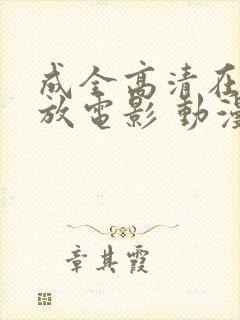 成全高清在
放電影 動漫
章其霞